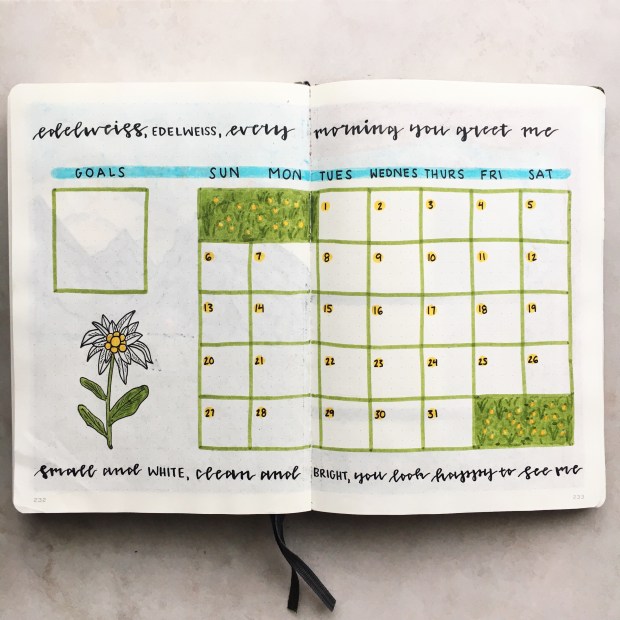 edelweiss, EDELWEISS, every morning you greet me
GOALS SUN MON TUES WEDNES THURS FRI SAT
1 2 3 4 5
6 7 8 9 10 11 12
13 14 15 16 17 18 19
20 21 22 23 24 25 26
27 28 29 30 31
small and WHITE, clean and BRIGHT, you look happy to see me